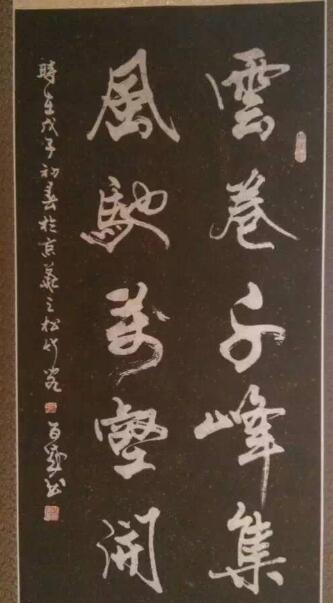 雲卷千峰集
風馳萬壑開
時在戊子初春於京華之松竹